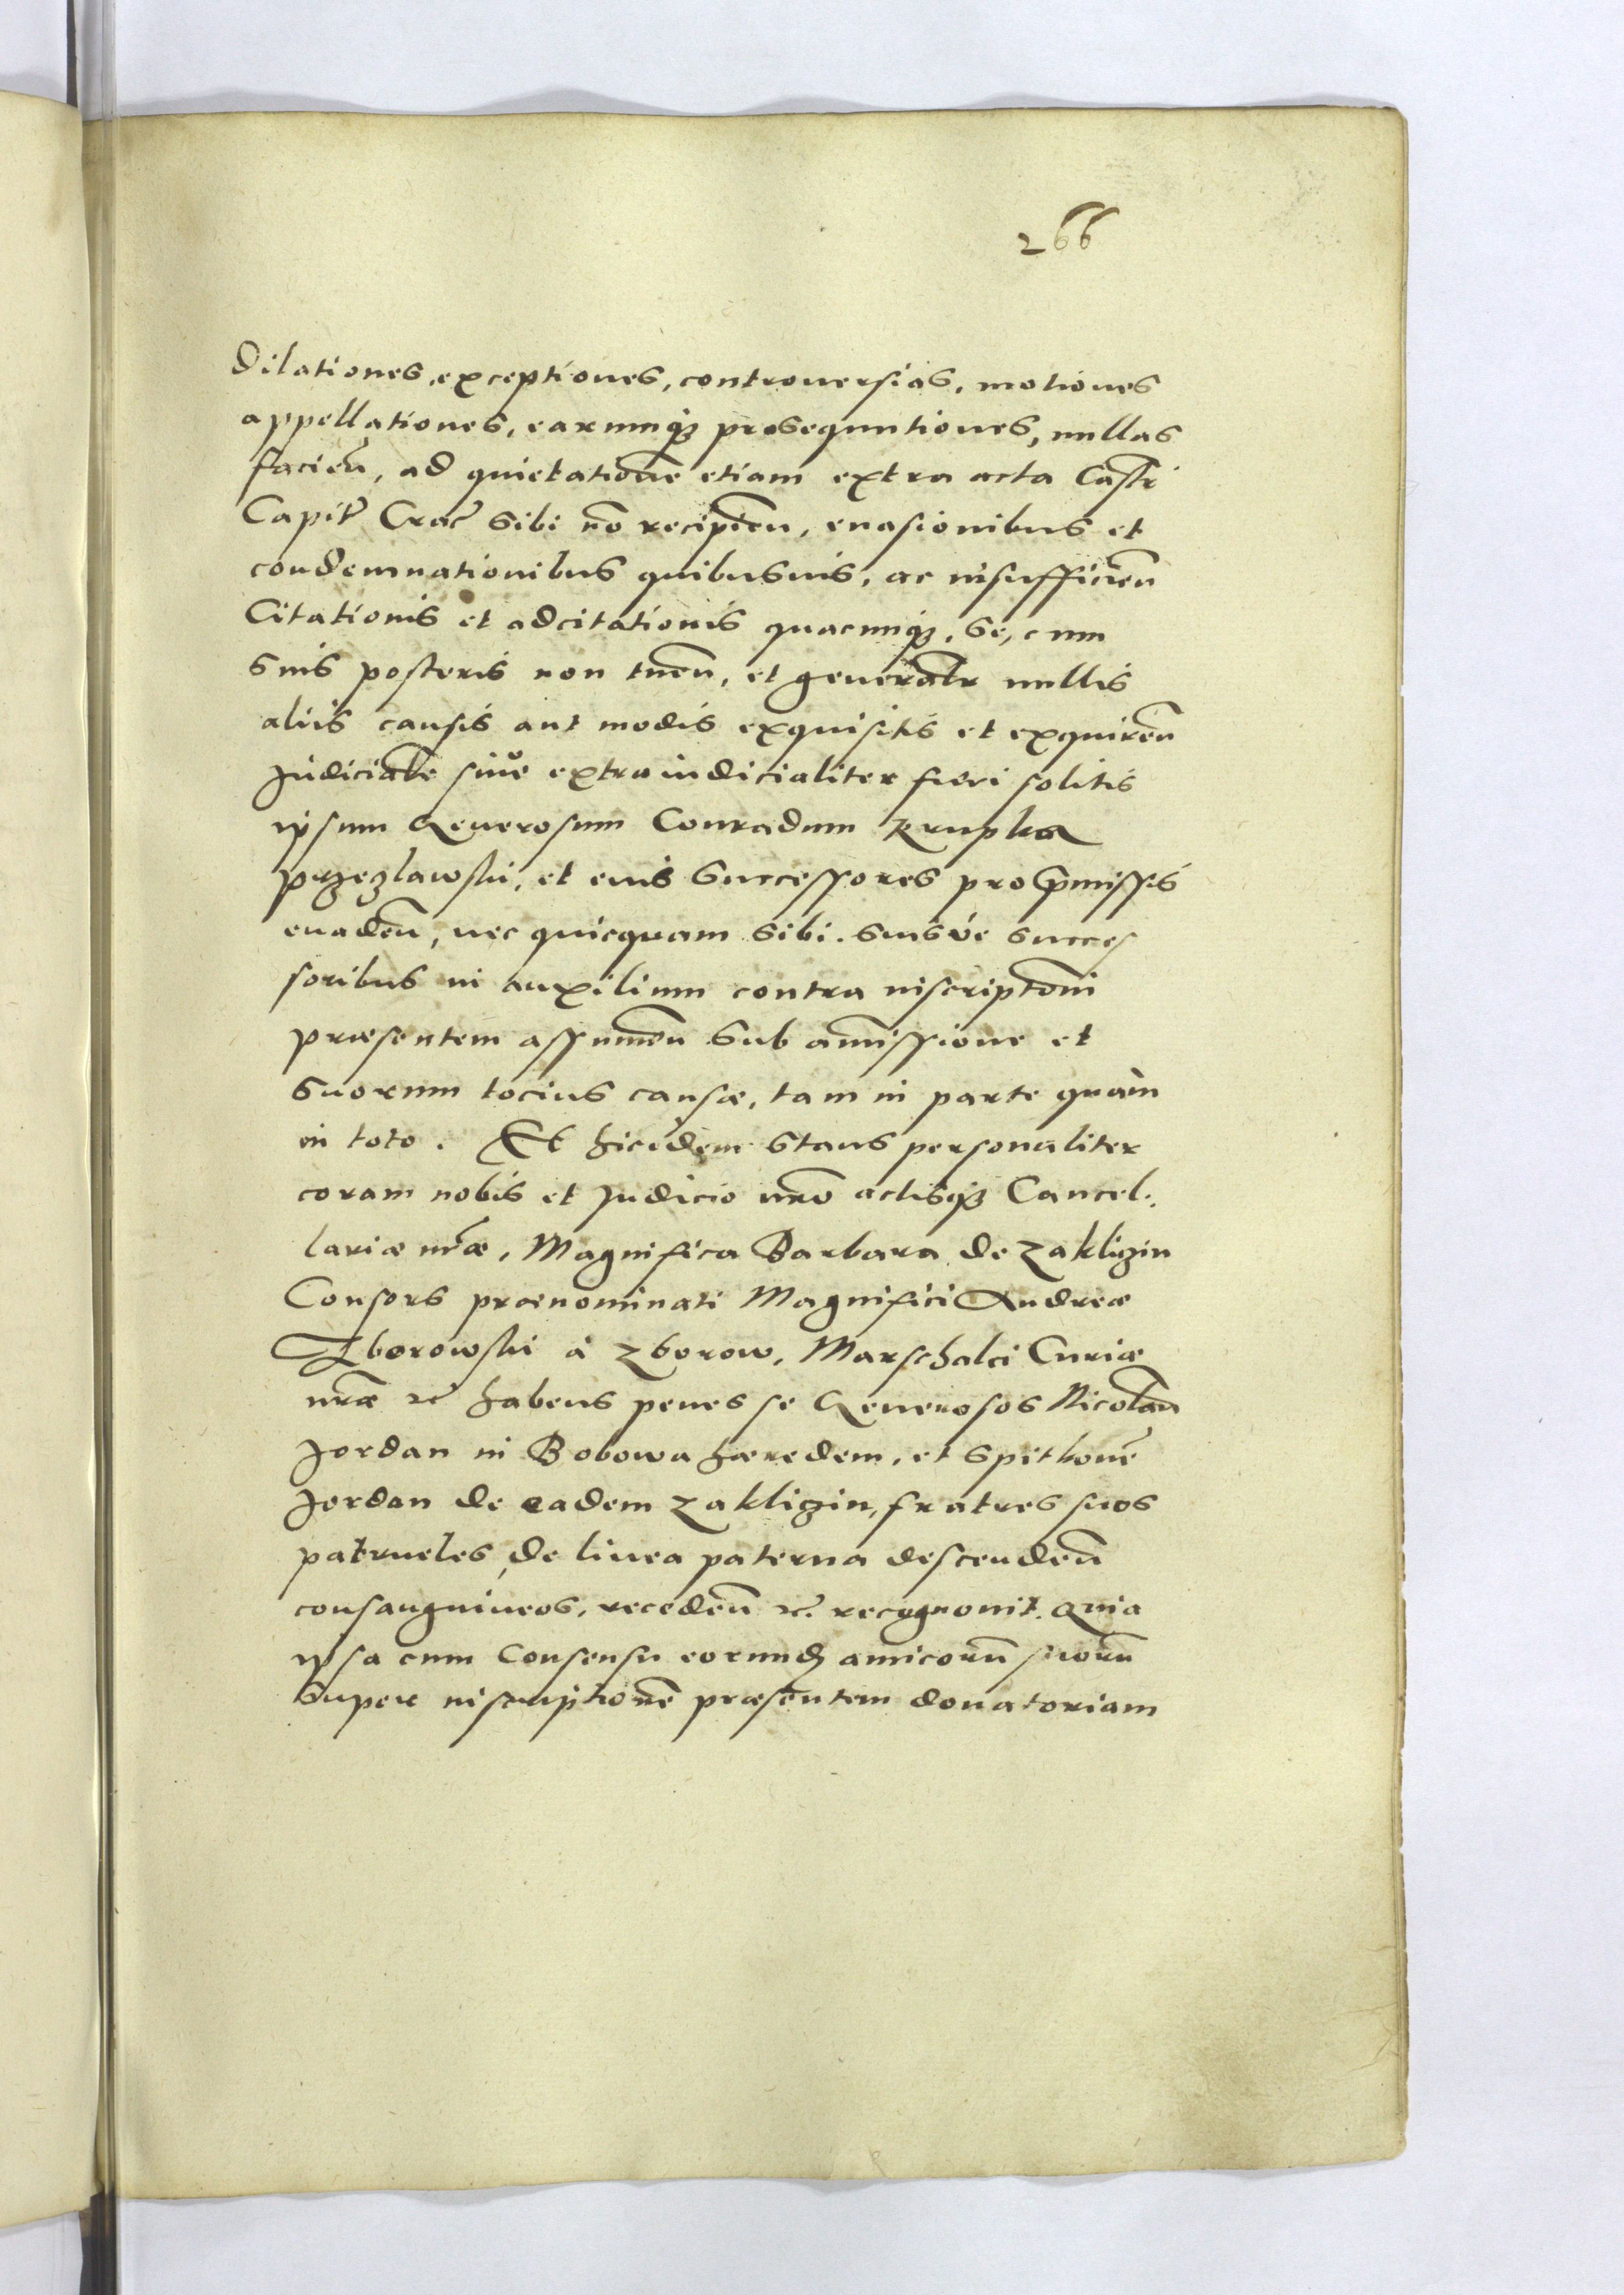 266
Dilationes, exceptiones, controuersias, motiones
appellationes, earumqꝫ prosequutiones, nullas
facieñ, ad quietationẽ etiam extra acta Castr̃
Capit̃ Crac̃ sibi nõ recipieñ, euasionibus et
condemnationibus quibusuis, ac insufficieñ
Citationis et adcitationis quacunqꝫ, se, cum
suis posteris non tueñ, et generalr̃ nullis
aliis causis aut modis exquisitis et exquireñ
Judicialr̃ siue extraiudicialiter fieri solitis
ipsum Generosum Conradum Krupka
Przezlawski, et eius successores pro p̃missis
euadeñ, nec quicquam sibi. suisué succes
soribus in auxilium contra inscriptõni
præsentem assumeñ sub amissione et
suorum tocius causæ, tam in parte quàm
in toto. Et hicidem stans personaliter
coram nobis et Judicio nr̃o actisqꝫ Cancel.
lariæ nr̃æ, Magnifica Barbara de Zakliczin
Consors prænominati Magnifici Andreæ
Zborowski à Zborow, Marschalci Curiæ
nr̃æ ꝛc̃ habens penes se Generosos Nicolaũ
Jordan in Bobowa hæredem, et Spitkonẽ
Jordan de eadem Zakliczin, fratres suos
patrueles, de linea paterna descendeñ
consanguineos, recedeñ ꝛc̃. recognouit. Quia
ipsa cum Consensu eorundꝫ amicorũ suorũ
super inscriptionẽ præsentem donatoriam